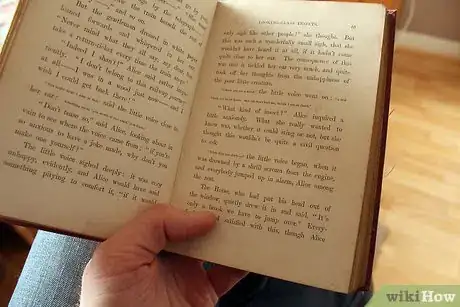 the train hook
But the gentleman dressed in white paper
leaned forwards and whispered in her ear,
"Never mind what they all say, my dear, but
take a return-ticket every time the train stops."
"Indeed I shan't!" Alice said rather impa-
tiently. "I don't belong to this railway journey
at all—I was in a wood just now—and I
wish I could get back there!"
said the little voice close to
her ear;
"Don't tease so," said Alice, looking about in
vain to see where the voice came from; "if you're
so anxious to have a joke made, why don't you
make one yourself?"
The little voice sighed deeply: it was very
unhappy, evidently, and Alice would have said
something pitying to comfort it, "if it would
LOOKING-GLASS INSECTS.
only sigh like other people!" she thought. But
this was such a wonderfully small sigh, that she
wouldn't have heard it at all, if it hadn't come
quite close to her ear. The consequence of this
was that it tickled her ear very much, and quite
took off her thoughts from the unhappiness of
the poor little creature.
the little voice went on;
"What kind of insect?" Alice inquired a
little anxiously. What she really wanted to
know was, whether it could sting or not, but she
thought this wouldn't be quite a civil question
to ask.
the little voice began, when it
was drowned by a shrill scream from the engine,
and everybody jumped up in alarm, Alice among
the rest.
The Horse, who had put his head out of
the window, quietly drew it in and said, "It's
only a brook we have to jump over." Every-
satisfied with this, though Alice
wikiHow